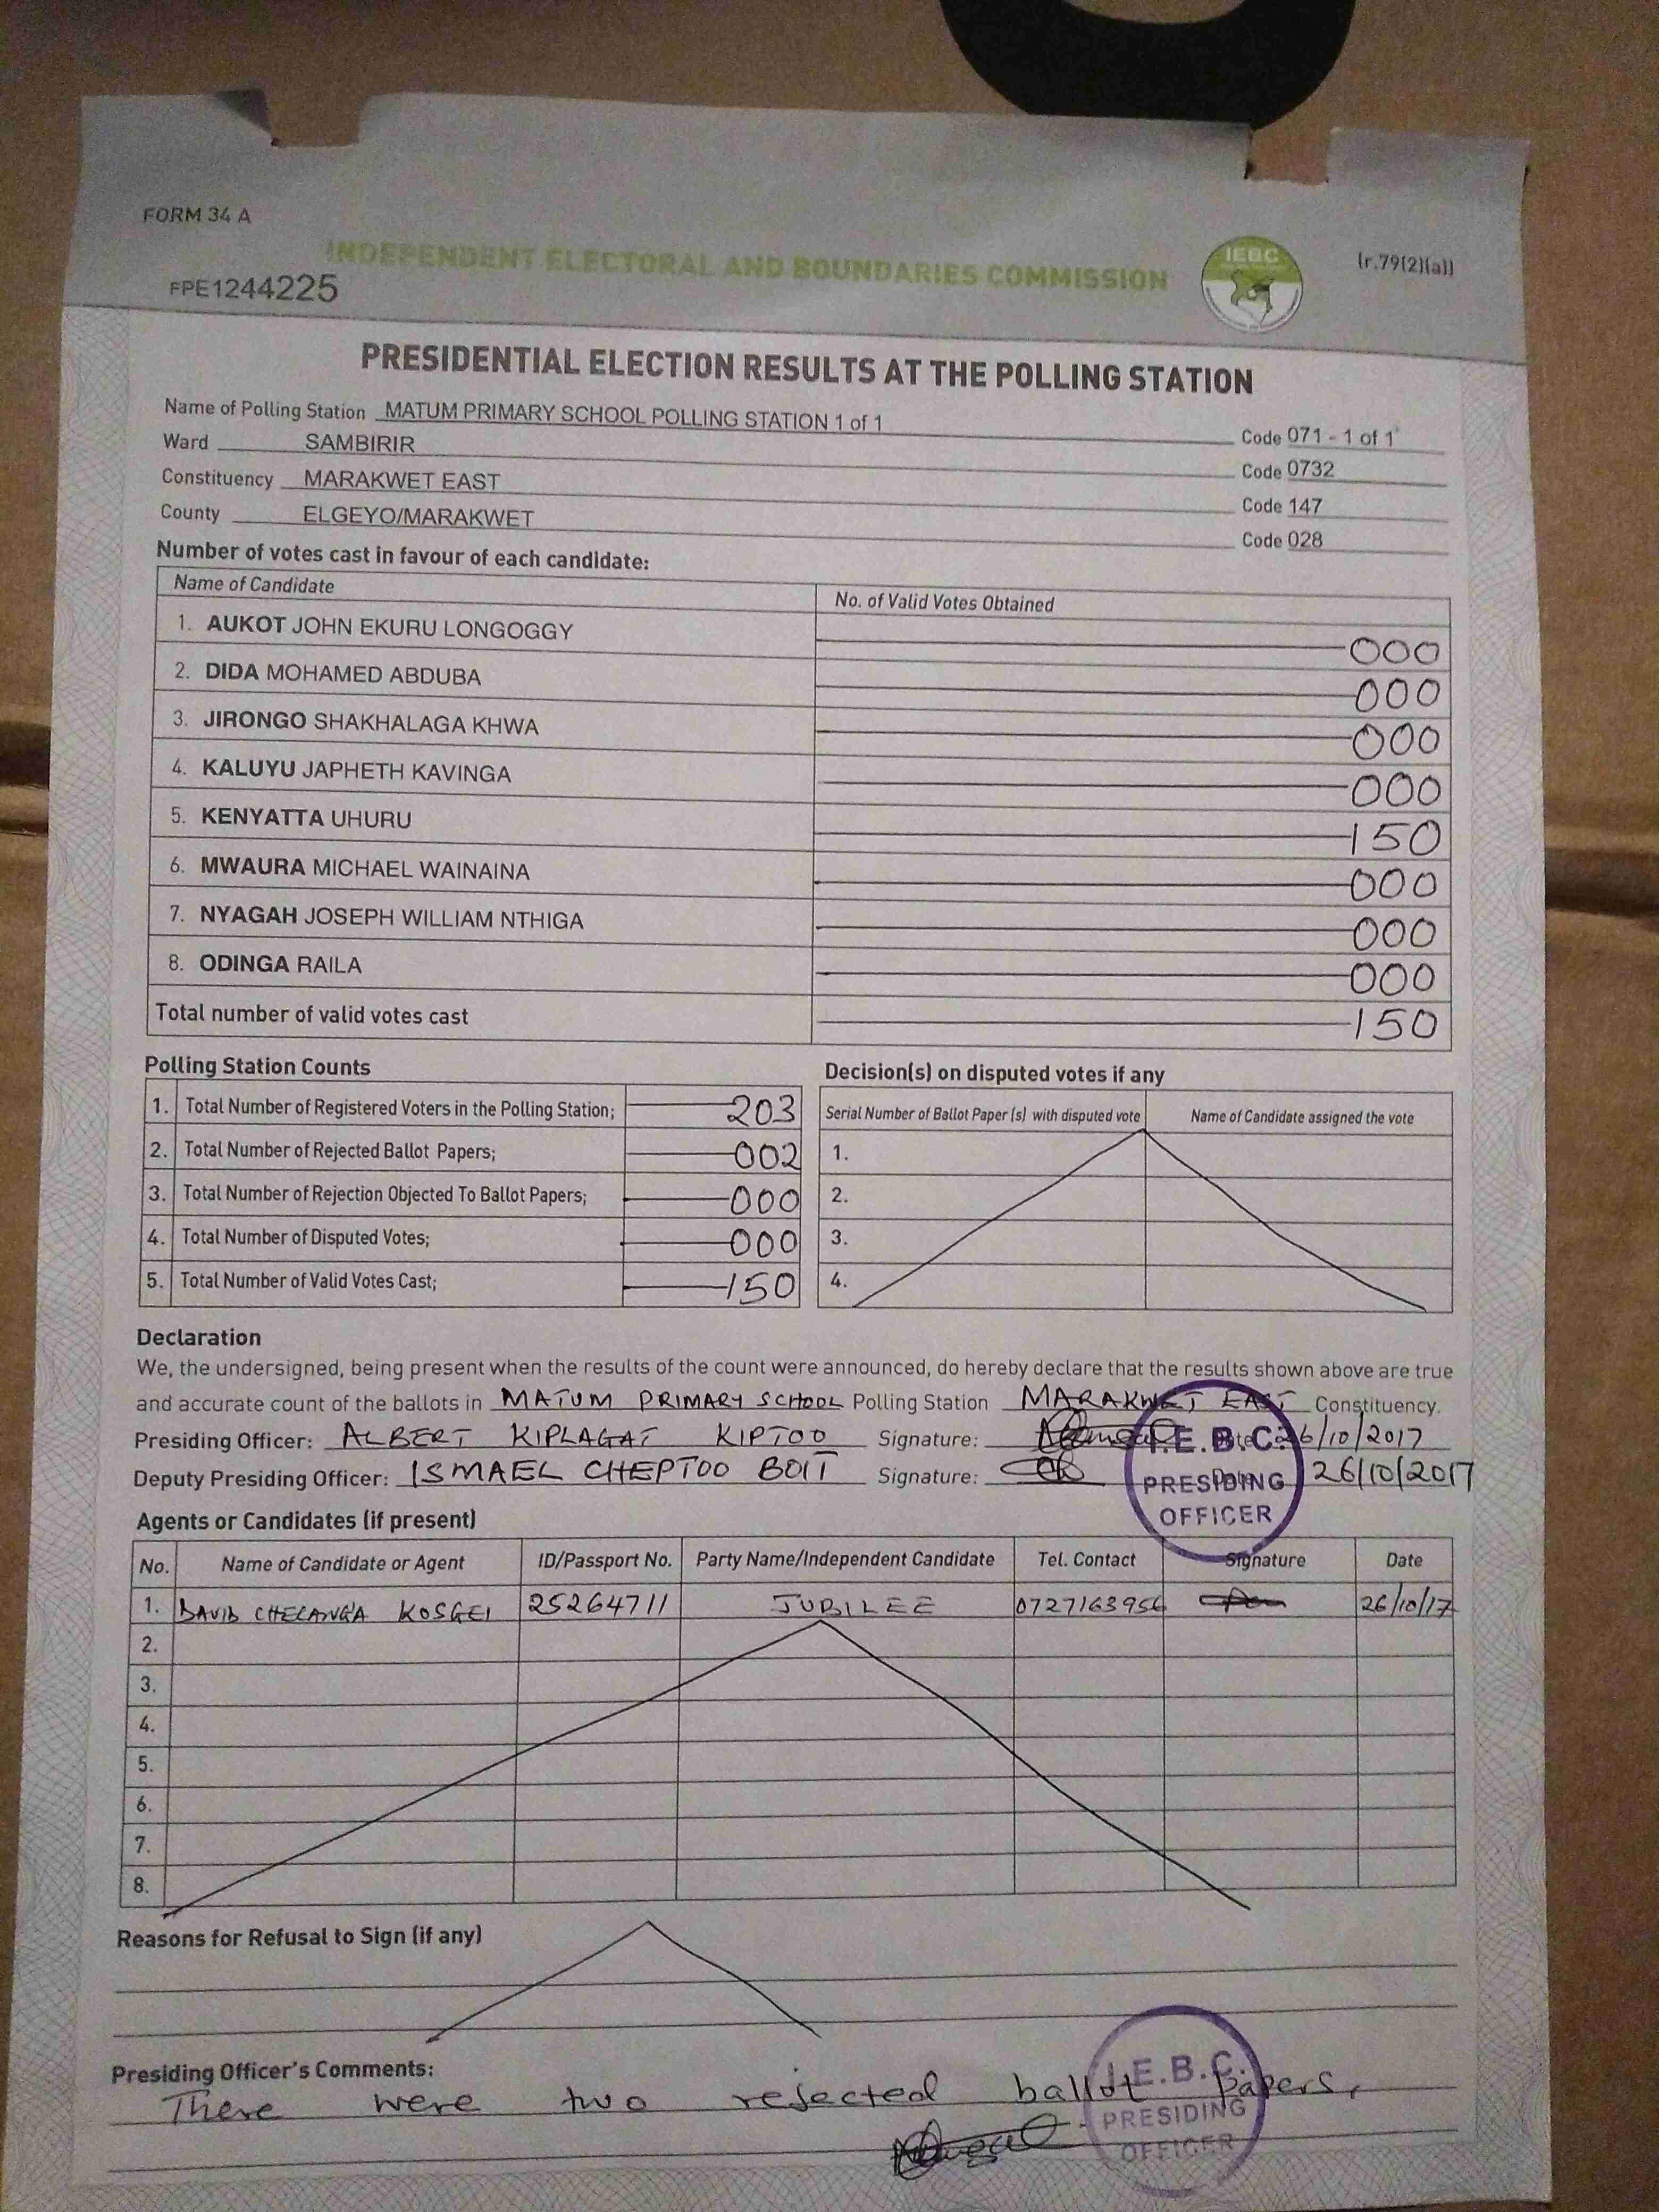 FORM 34 A
INDEPENDENT ELECTORAL AND BOUNDARIES COMMISSION
IEBC
(r.79(2)(a))
FPE1244225
PRESIDENTIAL ELECTION RESULTS AT THE POLLING STATION
Name of Polling Station MATUM PRIMARY SCHOOL POLLING STATION 1 of 1 Code 071 - 1 of 1
Ward SAMBIRIR Code 0732
Constituency MARAKWET EAST Code 147
County ELGEYO/MARAKWET Code 028
Number of votes cast in favour of each candidate:
Name of Candidate No. of Valid Votes Obtained
1. AUKOT JOHN EKURU LONGOGGY 000
2. DIDA MOHAMED ABDUBA 000
3. JIRONGO SHAKHALAGA KHWA 000
4. KALUYU JAPHETH KAVINGA 000
5. KENYATTA UHURU 150
6. MWAURA MICHAEL WAINAINA 000
7. NYAGAH JOSEPH WILLIAM NTHIGA 000
8. ODINGA RAILA 000
Total number of valid votes cast 150
Polling Station Counts
1. Total Number of Registered Voters in the Polling Station; 203
2. Total Number of Rejected Ballot Papers; 002
3. Total Number of Rejection Objected To Ballot Papers; 000
4. Total Number of Disputed Votes; 000
5. Total Number of Valid Votes Cast; 150
Decision(s) on disputed votes if any
Serial Number of Ballot Paper (s) with disputed vote Name of Candidate assigned the vote
1.
2.
3.
4.
Declaration
We, the undersigned, being present when the results of the count were announced, do hereby declare that the results shown above are true
and accurate count of the ballots in MATUM PRIMARY SCHOOL Polling Station MARAKWET EAST Constituency.
Presiding Officer: ALBERT KIPLAGAT KIPTOO Signature: Date 26/10/2017
Deputy Presiding Officer: ISMAEL CHEPTOO BOIT Signature: Date 26/10/2017
I.E.B.C.
PRESIDING
OFFICER
Agents or Candidates (if present)
No. Name of Candidate or Agent ID/Passport No. Party Name/Independent Candidate Tel. Contact Signature Date
1. DAVID CHELANGA KOSGEI 25264711 JUBILEE 0727163956 26/10/17
2.
3.
4.
5.
6.
7.
8.
Reasons for Refusal to Sign (if any)
Presiding Officer's Comments:
There were two rejected ballot papers,
I.E.B.C.
PRESIDING
OFFICER